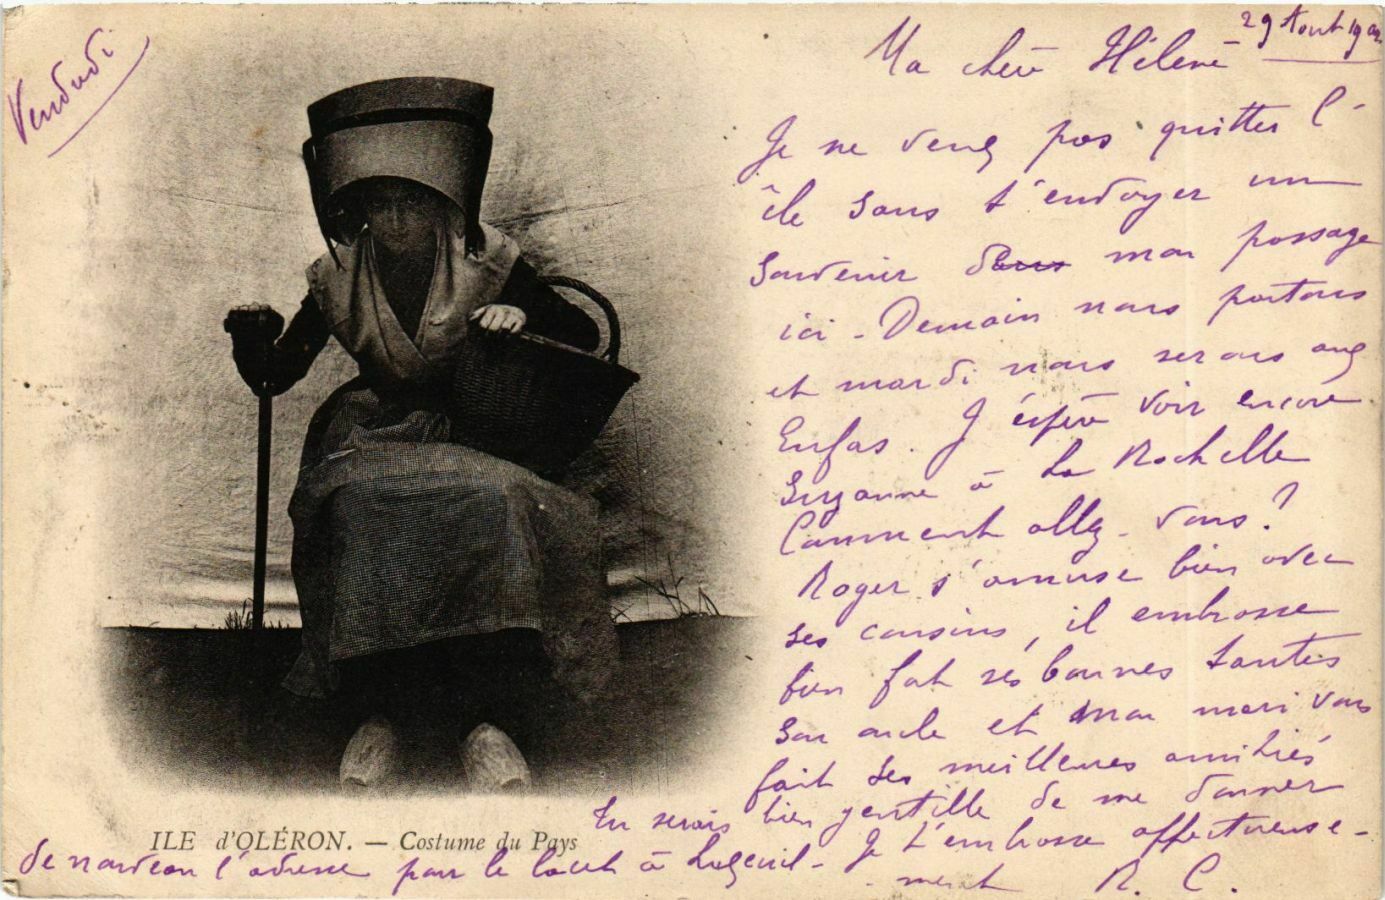 Vendredi
29 Août 190
Ma chère Hélène
Je ne veux pas quitter l'
île sans t'envoyer un
souvenir de mon passage
ici - Demain nous partons
et mardi nous serons aux
Enfas. J'éspère voir encore
Suzanne à La Rochelle
Comment allez-vous?
Roger s'amuse bien avec
ses cousins, il embrasse
bien fort ses bonnes tantes
son oncle et mon mari vous
fait ses meilleures amitiés
Tu serais bien gentille de me donner
de nouveau l'adresse pour le lacet à Luxeuil-
Je t'embrasse affectueuse-
-ment R. C.
ILE d'OLÉRON. — Costume du Pays